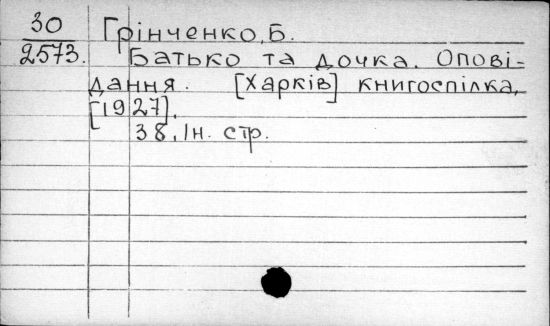 30
2573.
Грінченко, Б.
Батько та дочка. Опові-
дання. [Харків] книгоспілка,
[1927].
38, Ін. стр.